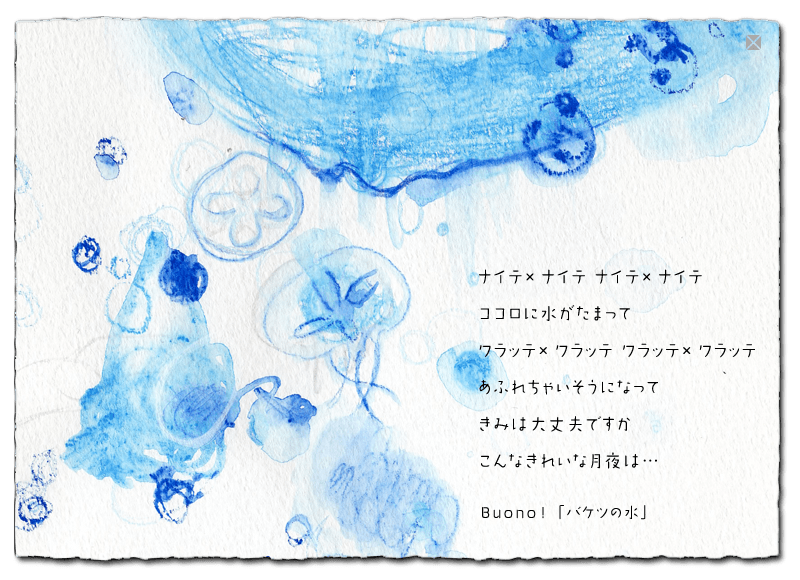 ナイテ×ナイテ ナイテ×ナイテ
ココロに水がたまって
ワラッテ×ワラッテ ワラッテ×ワラッテ
あふれちゃいそうになって
きみは大丈夫ですか
こんなきれいな月夜は…
Buono!「バケツの水」